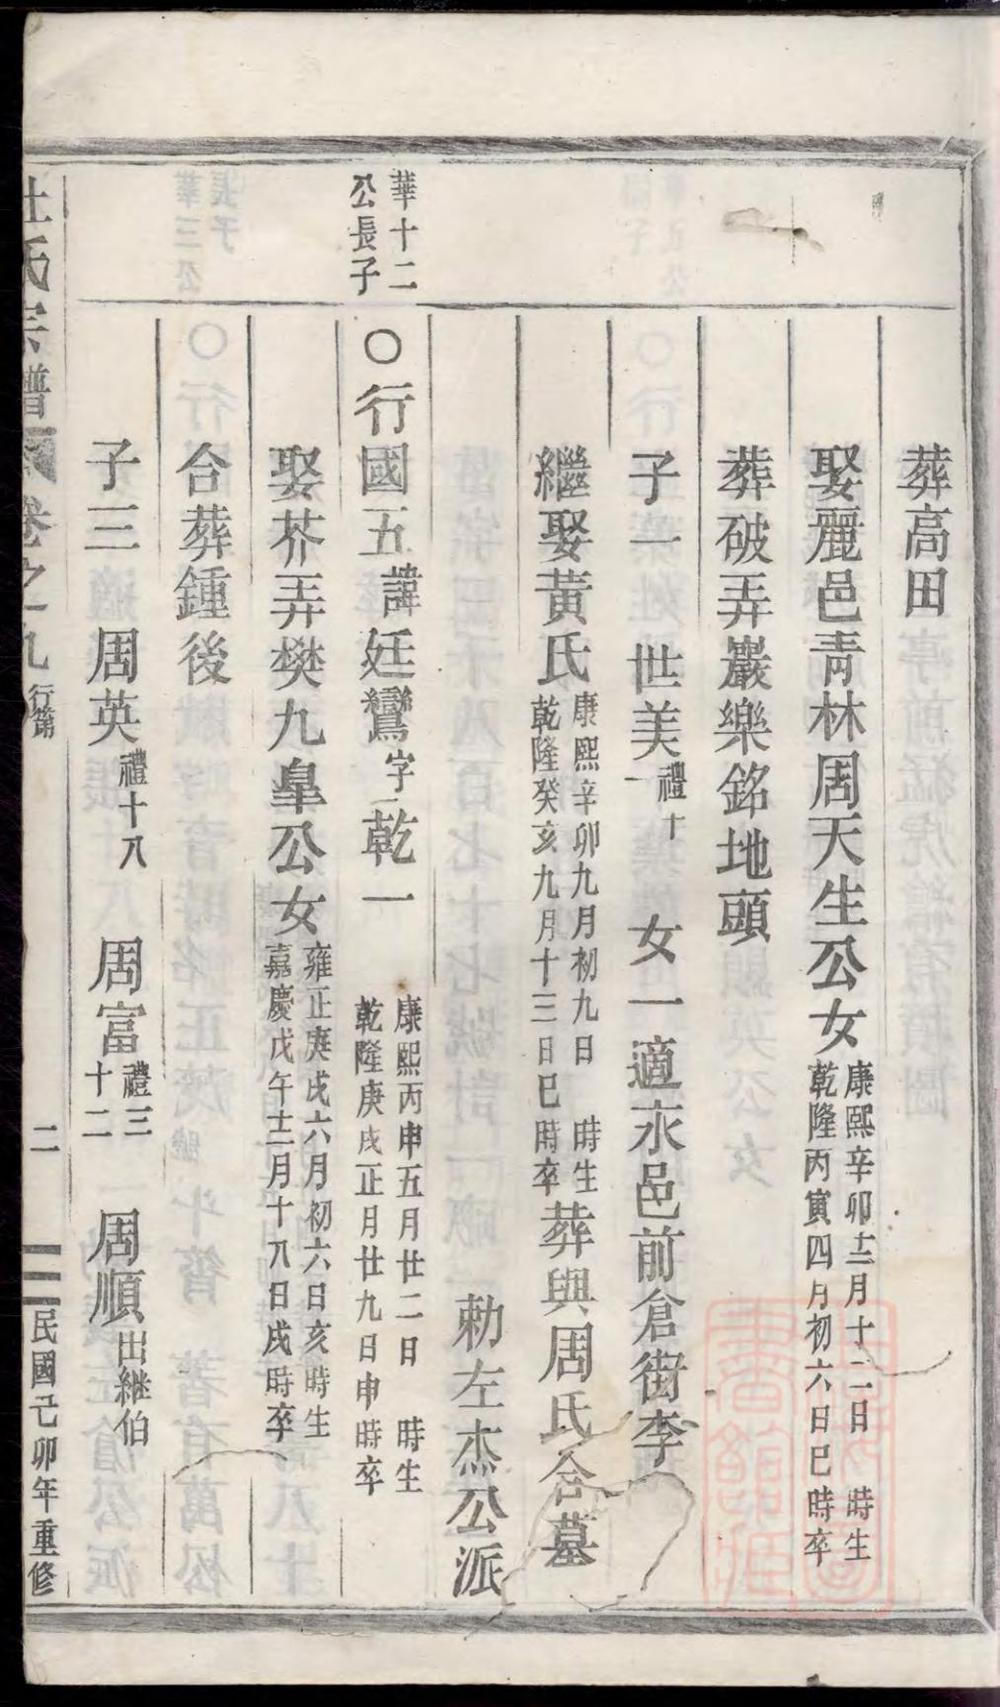 葬高田
娶麗邑青林周天生公女康熙辛卯十二月十二日 時生
乾隆丙寅四月初六日巳時卒
葬破弄巖樂銘地頭
子一 世美禮十一 女一適永邑前倉街李
繼娶黃氏康熙辛卯九月初九日 時生
乾隆癸亥九月十三日巳時卒葬與周氏合墓
勅左杰公派
華十二
公長子
○行國五諱廷鸞字乾一 康熙丙申五月廿二日 時生
乾隆庚戌正月廿九日申時卒
娶芥弄樊九臯公女雍正庚戌六月初六日亥時生
嘉慶戊午十二月十八日戌時卒
合葬鍾後
子三 周英禮十八 周富禮三十二 周順出継伯
杜氏宗譜 卷之九行第 二 民國己卯年重修